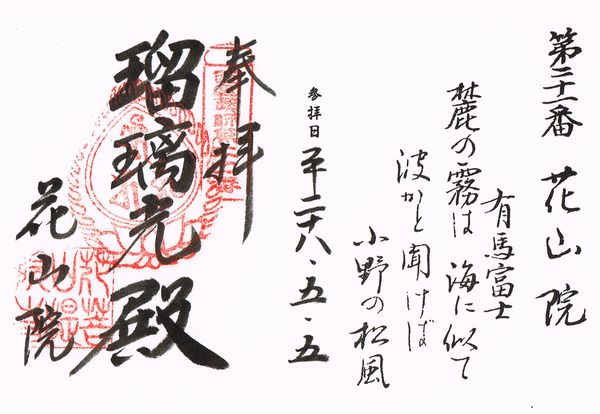 第二十一番 花山院
有馬富士
麓の霧は 海に似て
波かと聞けば
小野の松風
参拝日 平二十八・五・五
奉拝
瑠璃光殿
花山院